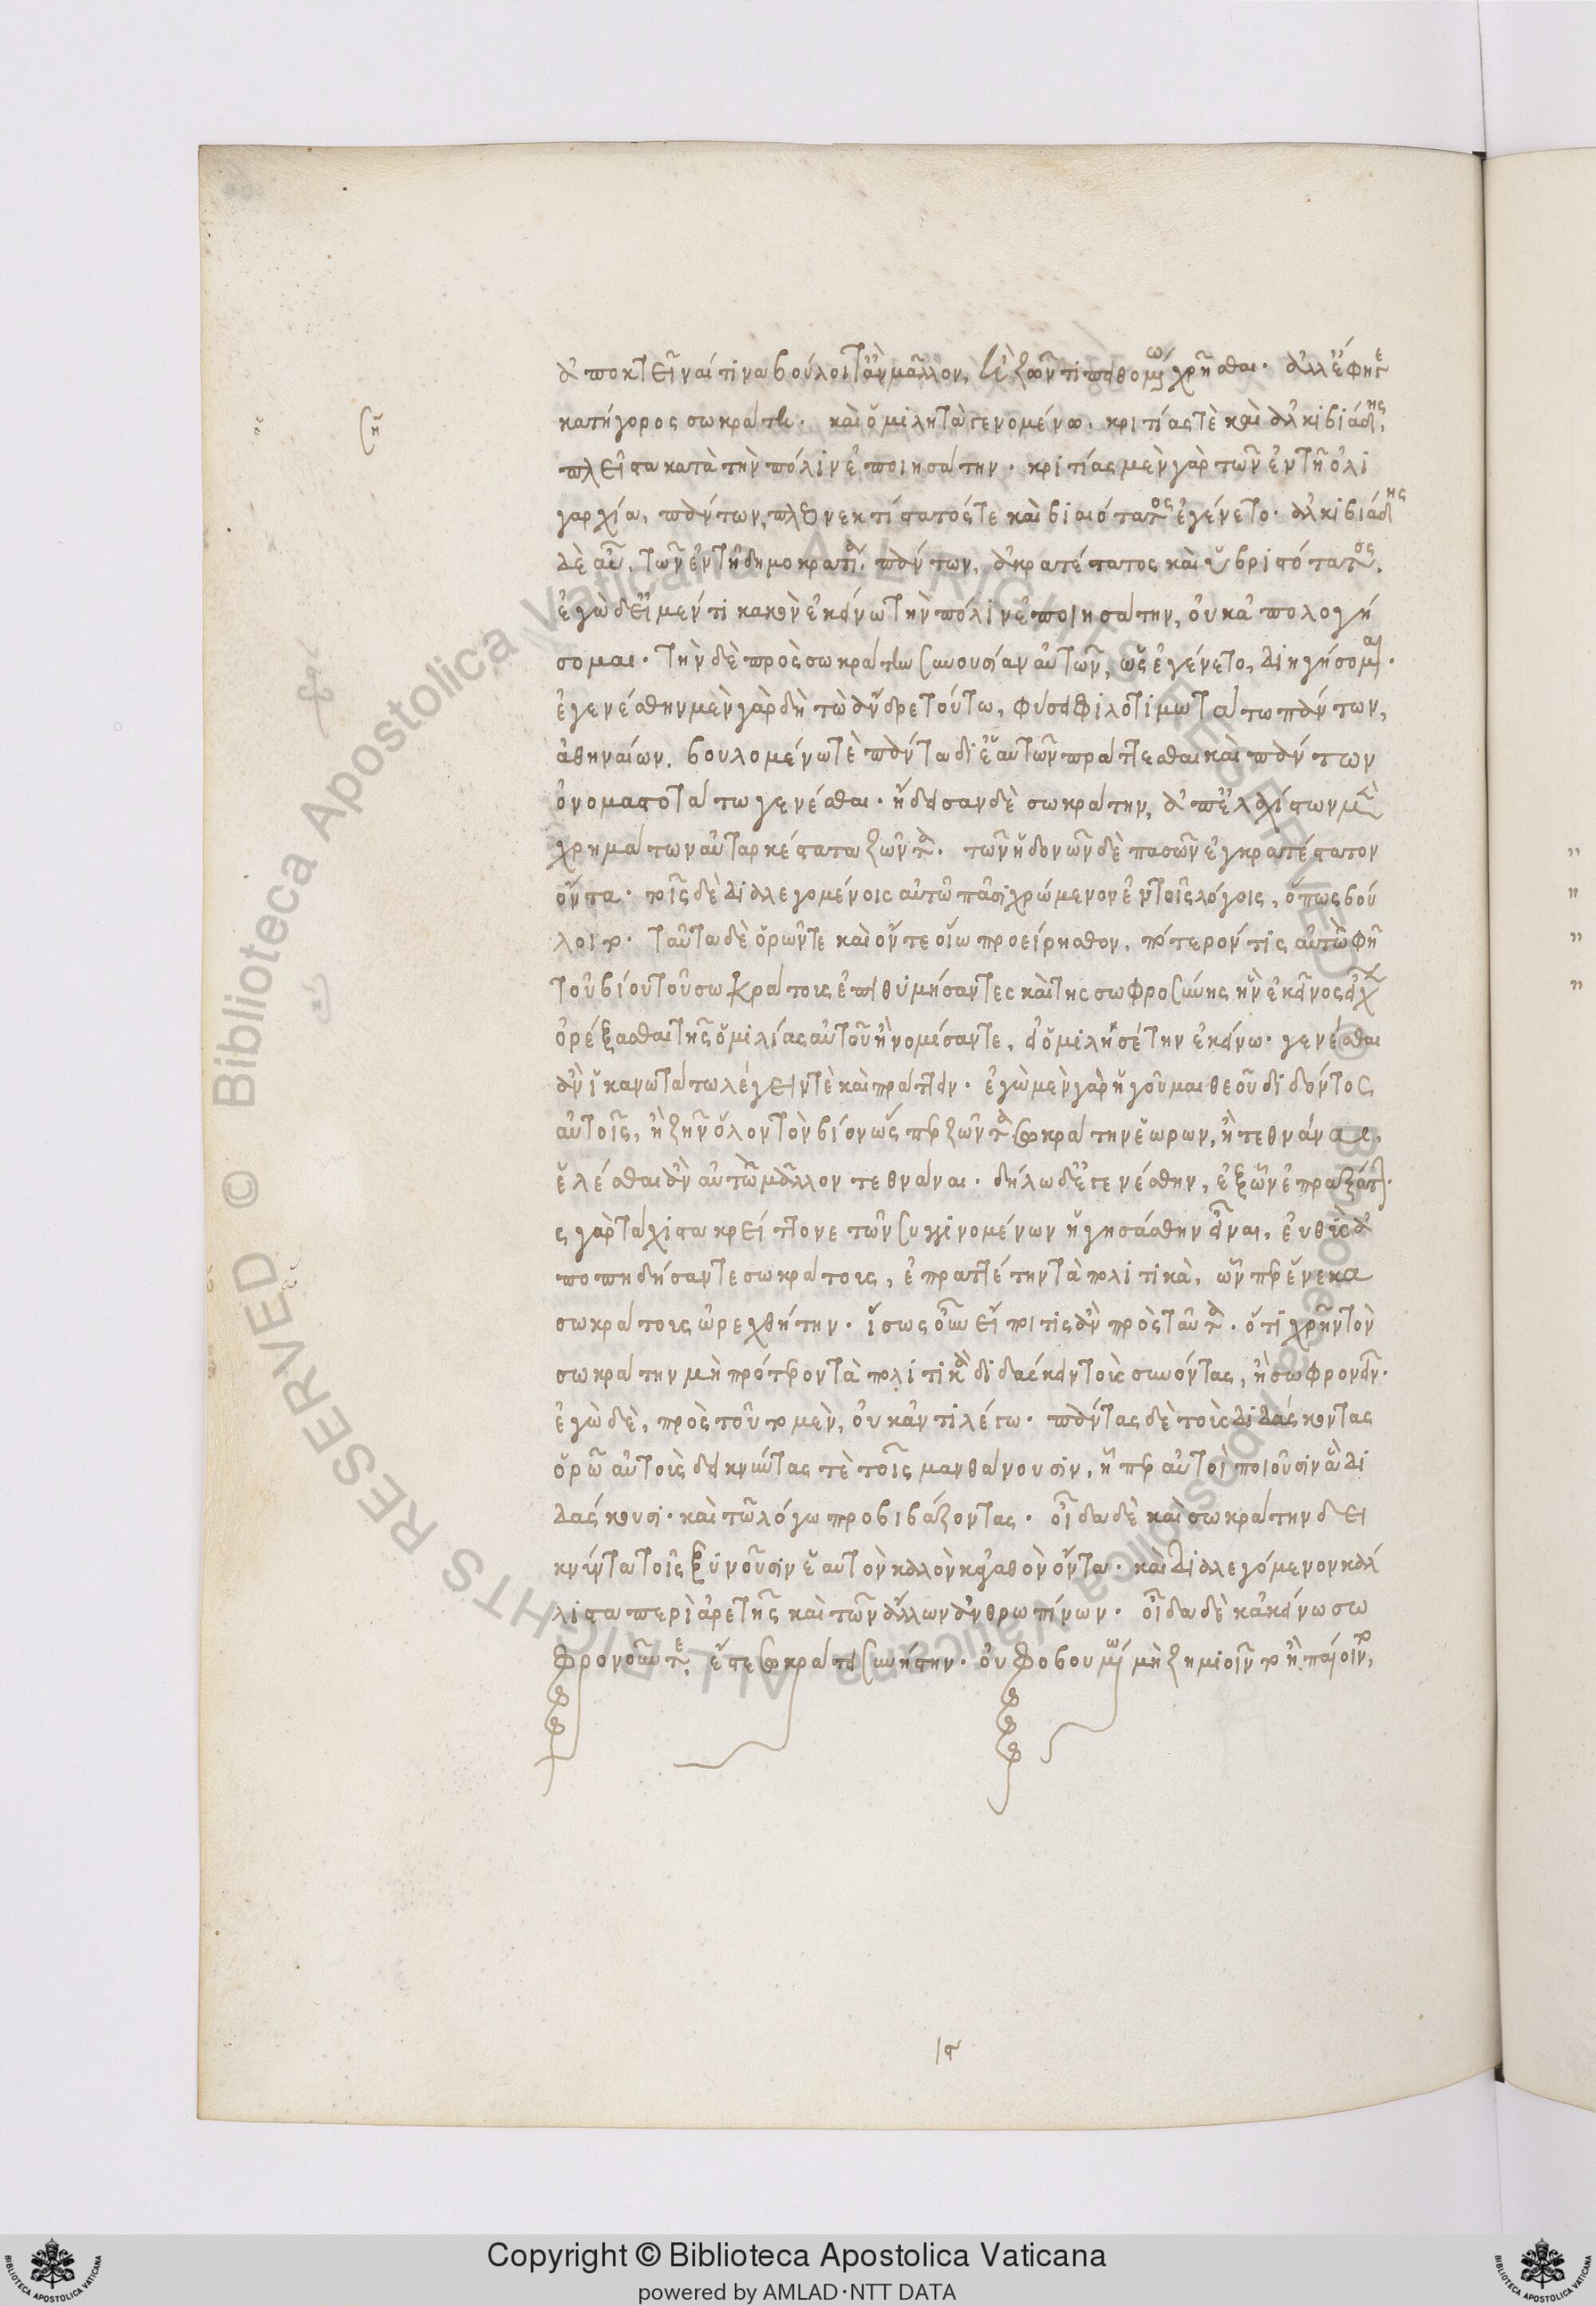 ἀποκτεῖναί τινα βούλοιτ ἂν μᾶλλον, ἢ ζῶντι πειθομένω χρῆσθαι. ἀλλ ἔφη γε
σῆ κατήγορος σωκράτει. καὶ ὁμιλητὰ γενομένω. κριτίας τὲ καὶ ἀλκιβιάδης,
πλεῖστα κατὰ τὴν πόλιν ἐποιησάτην. κριτίας μὲν γὰρ τῶν ἐν τῆ ὀλι
γαρχία, πάντων, πλεονεκτίστατός τε καὶ βιαιότατος ἐγένετο. ἀλκιβιάδης
δὲ αὖ, τῶν ἐν τῆ δημοκρατία, πάντων, ἀκρατέστατος καὶ ὑβριστότατος.
ἐγὼ δ εἰ μέν τι κακὸν ἐκείνω τὴν πόλιν ἐποιησάτην, οὐκ ἀπολογή
σομαι. τὴν δὲ πρὸς σωκράτην συνουσίαν αὐτῶν, ὡς ἐγένετο, διηγήσομαι.
ἐγενέσθην μὲν γὰρ δὴ τὼ ἄνδρε τούτω, φύσει φιλοτιμωτάτω πάντων,
ἀθηναίων. βουλομένω τὲ πάντα δι ἑαυτῶν πράττεσθαι καὶ πάντων
ὀνομαστοτάτω γενέσθαι. ἤδεσαν δὲ σωκράτην, ἀπ ἐλαχίστων μὲν
χρημάτων αὐταρκέστατα ζῶντα. τῶν ἡδονῶν δὲ πασῶν ἐγκρατέστατον
ὄντα. τοῖς δὲ διαλεγομένοις αὐτῶ πᾶσι χρώμενον ἐν τοῖς λόγοις, ὅπως βού
λοιτο. ταῦτα δὲ ὁρῶντε καὶ ὄντε οἵω προείρησθον, πότερόν τις αὐτὼ φῆ
τοῦ βίου τοῦ σωκράτους ἐπιθυμήσαντες καὶ της σωφροσύνης ἣν ἐκεῖνος εἶχεν
ὀρέξασθαι τῆς ὁμιλίας αὐτοῦ ἢ νομίσαντε, εἰ ὁμιλησέτην ἐκείνω. γενέσθαι
ἂν ἱκανωτάτω λέγειν τὲ καὶ πράττειν. ἐγὼ μὲν γὰρ ἡγοῦμαι θεοῦ διδόντος
αὐτοῖς, ἢ ζῆν ὅλον τὸν βίον ὥσπερ ζῶντα σωκράτην ἑώρων, ἢ τεθνάναι,
ἑλέσθαι ἂν αὐτὼ μᾶλλον τεθνάναι. δήλω δ ἐγενέσθην, ἐξ ὧν ἐπραξάτην.
ὡς γὰρ τάχιστα κρείττονε τῶν συγγινομένων ἡγησάσθην εἶναι, εὐθὺς ἀ
ποπηδήσαντε σωκράτους, ἐπραττέτην τὰ πολιτικὰ, ὧν περ ἕνεκα
σωκράτους ὠρεχθήτην. ἴσως οὖν εἴποι τις ἂν πρὸς ταῦτα. ὅτι χρῆν τὸν
σωκράτην μὴ πρότερον τὰ πολιτικὰ διδάσκειν τοὺς συνόντας, ἢ σωφρονεῖν.
ἐγὼ δὲ, πρὸς τοῦτο μὲν, οὐκ ἀντιλέγω. πάντας δὲ τοὺς διδάσκοντας
ὁρῶ αὐτοὺς δεικνύντας τὲ τοῖς μανθάνουσιν, ἧπερ αὐτοὶ ποιοῦσιν ἃ δι
δάσκουσι. καὶ τῶ λόγω προβιβάζοντας. οἶδα δὲ καὶ σωκράτην δει
κνύντα τοῖς ξυνοῦσιν ἑαυτὸν καλὸν κἀγαθὸν ὄντα. καὶ διαλεγόμενον κάλ
λιστα περὶ ἀρετῆς καὶ τῶν ἄλλων ἀνθρωπίνων. οἶδα δὲ κἀκείνω σω
φρονοῦντε, ἔστε σωκράτει συνήστην. οὐ φοβουμένω μὴ ζημιοῖντο ἢ παίοιντο,
Copyright © Biblioteca Apostolica Vaticana
powered by AMLAD·NTT DATA